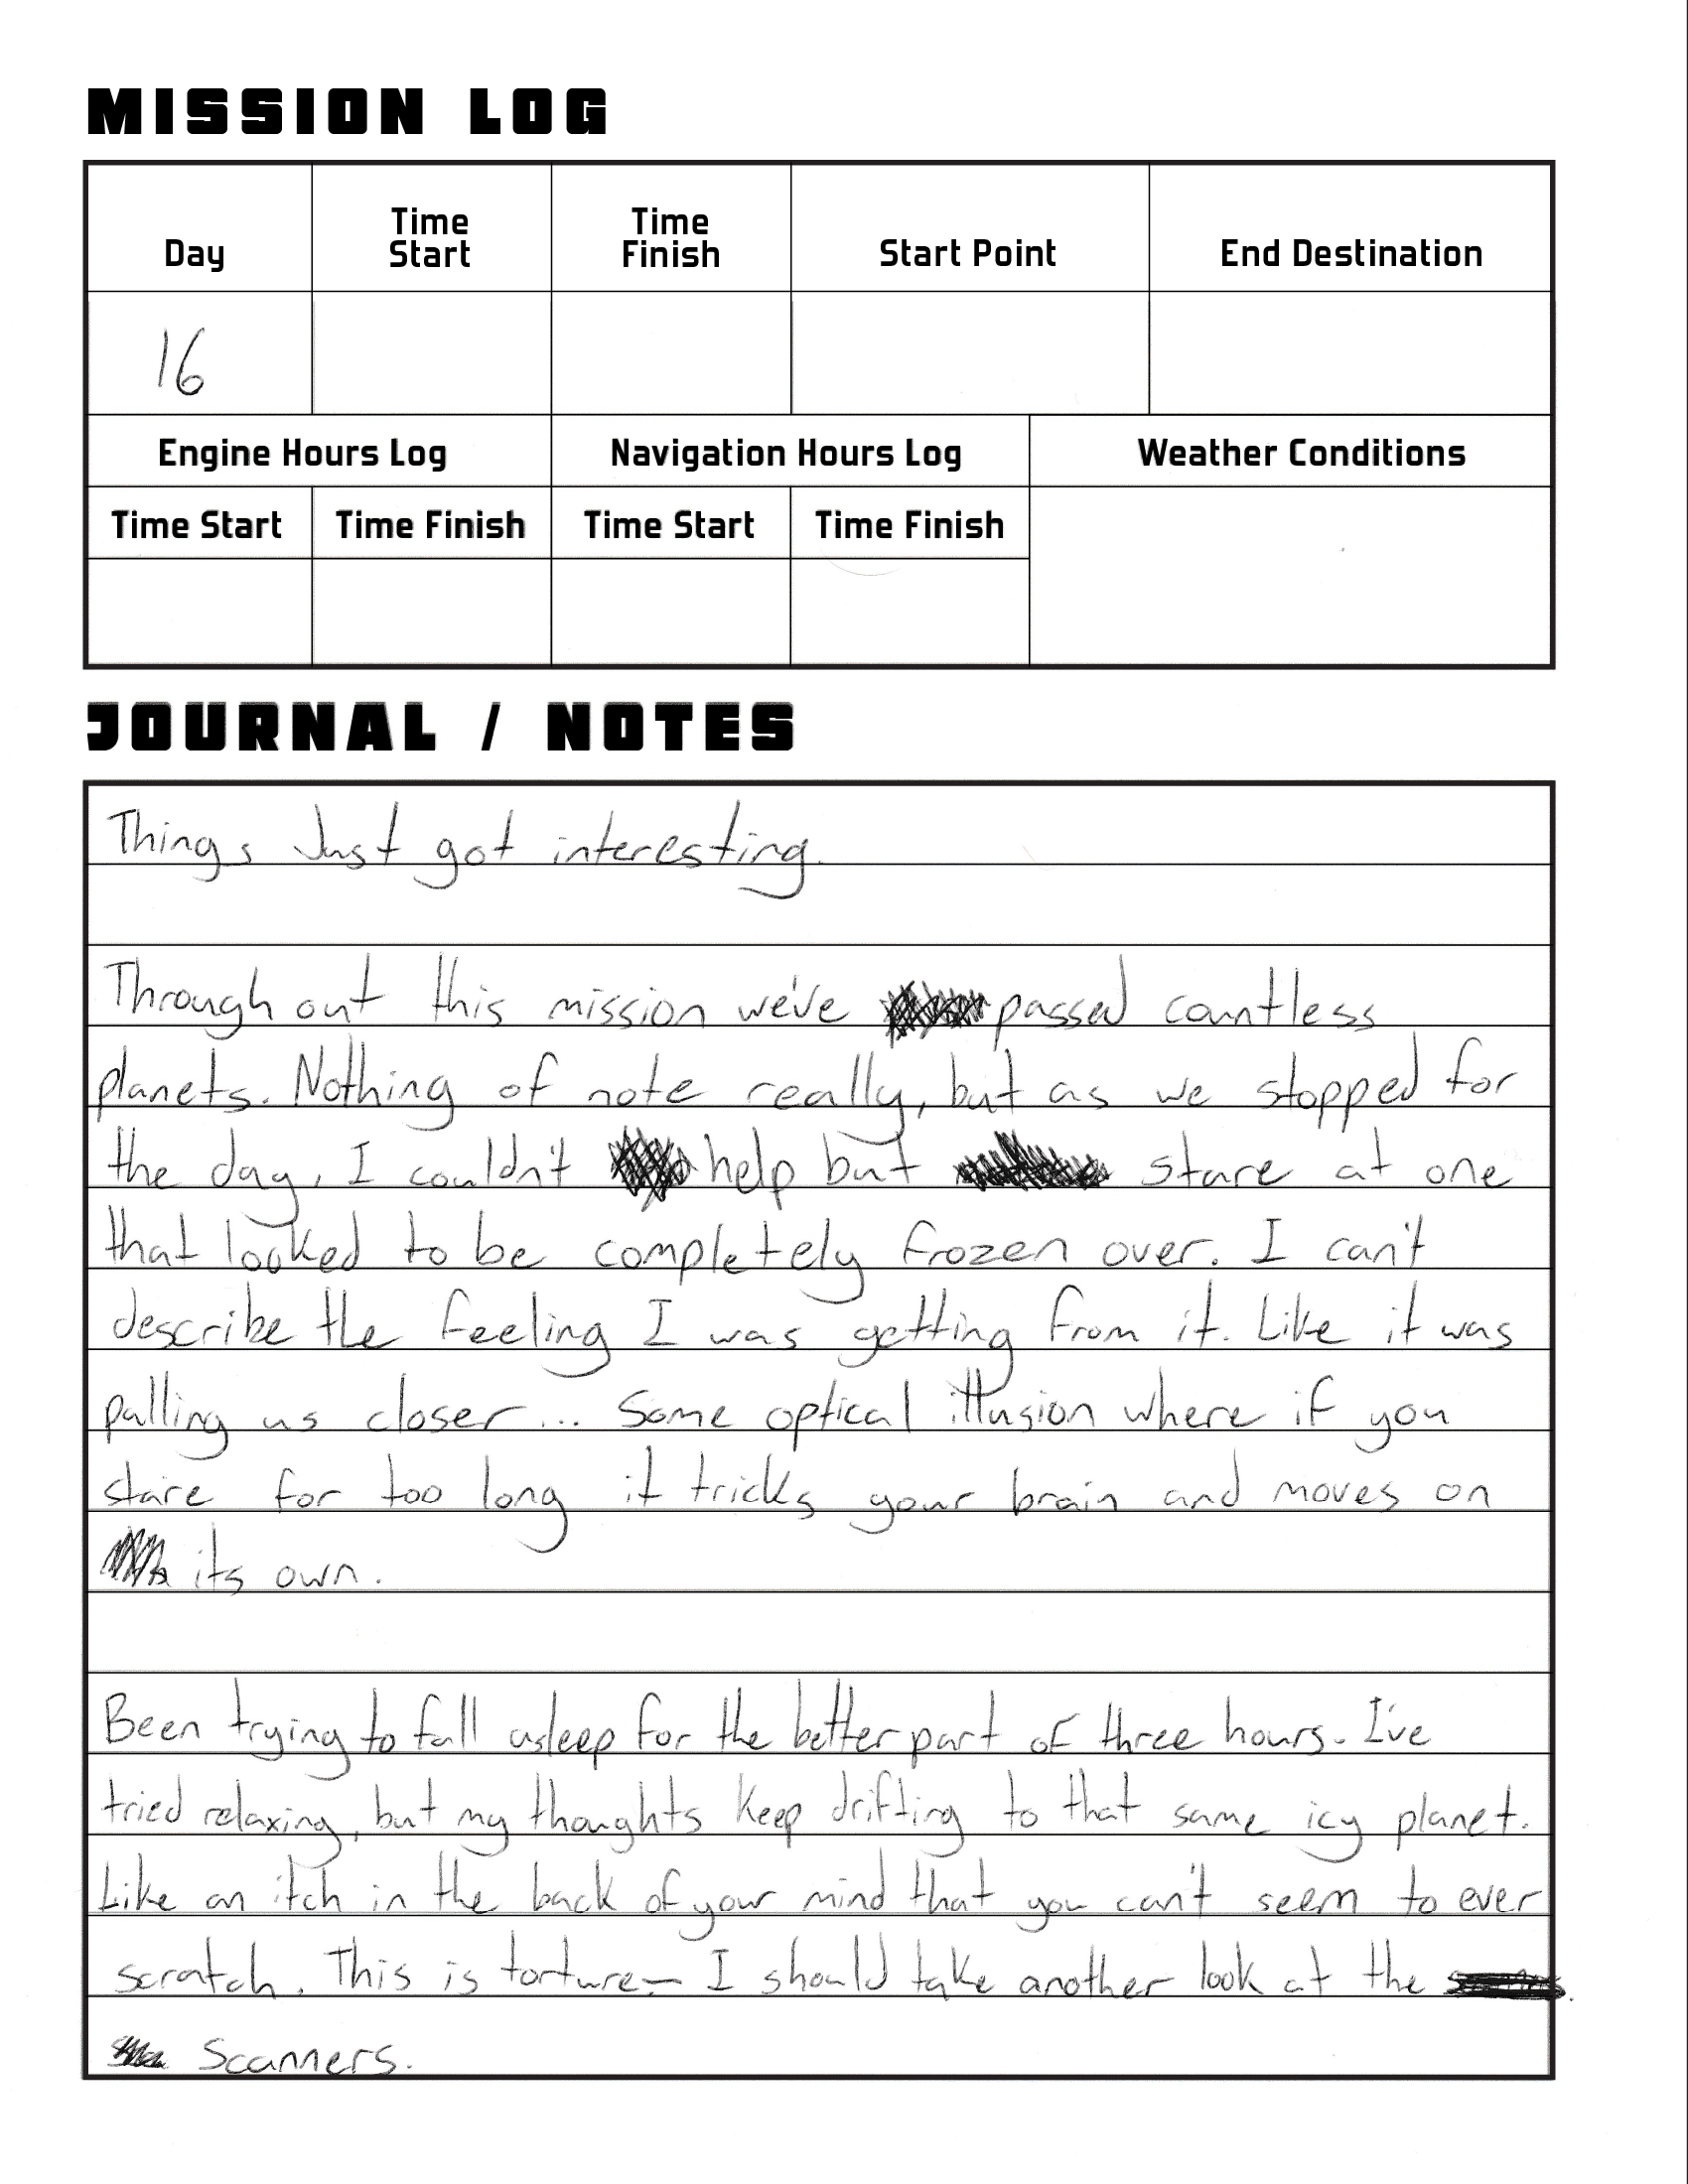 MISSION LOG
Day Time Start Time Finish Start Point End Destination
16
Engine Hours Log Navigation Hours Log Weather Conditions
Time Start Time Finish Time Start Time Finish
JOURNAL / NOTES
Things Just got interesting.
Through out this mission we've passed countless
planets. Nothing of note really, but as we stopped for
the day, I couldn't help but stare at one
that looked to be completely frozen over. I can't
describe the feeling I was getting from it. Like it was
pulling us closer... Some optical illusion where if you
stare for too long it tricks your brain and moves on
its own.
Been trying to fall asleep for the better part of three hours. I've
tried relaxing, but my thoughts keep drifting to that same icy planet.
Like an itch in the back of your mind that you can't seem to ever
scratch. This is torture— I should take another look at the
Scanners.